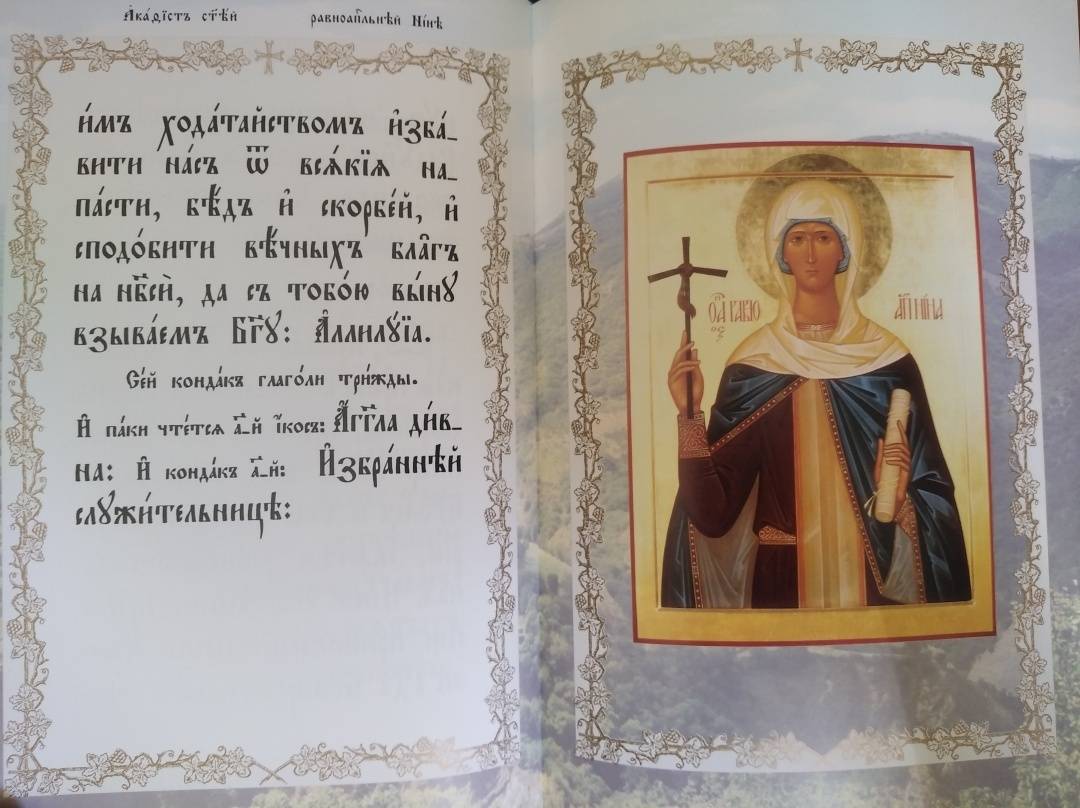 А҆ка́ѳїстъ ст҃ѣ́й равноап҃льнѣй Ні́нѣ
и́мъ хода́тайствомъ и҆зба́_
вити на́съ ѿ вся́кїѧ на_
па́сти, бѣ́дъ и҆ скорбе́й, и҆
сподо́бити вѣ́чныхъ бла҃гъ
на нб҃сѝ, да съ тобо́ю вы́нꙋ
взыва́емъ Бг҃ꙋ: А҆ллилꙋ́їа.
Се́й конда́къ глаго́ли три́жды.
И҆ па́ки чте́тся а҃_й і҆́косъ: А҆́гг҃ла ди́в_
на: И҆ конда́къ а҃_й: И҆збра́ннѣй
слꙋжи́тельницѣ:
АП НІНА